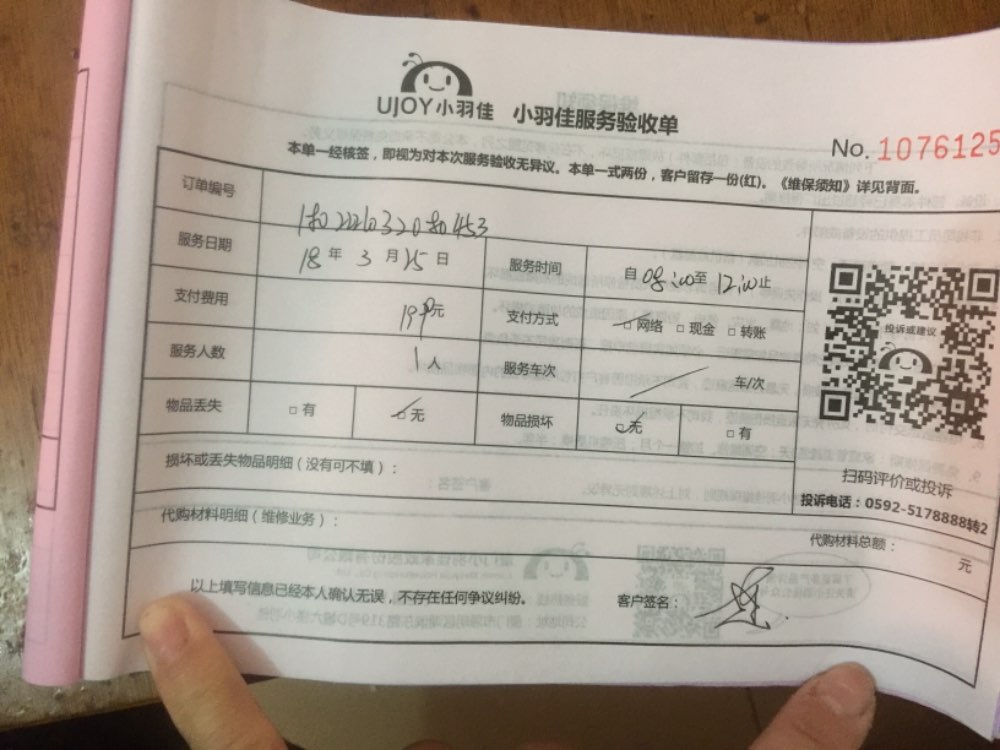 UJOY小羽佳 小羽佳服务验收单
No. 1076125
本单一经核签，即视为对本次服务验收无异议。本单一式两份，客户留存一份(红)。《维保须知》详见背面。
订单编号
服务日期 18 年 3 月 25 日 服务时间 自 08:00 至 12:00 止
支付费用 元 支付方式 □ 网络 □ 现金 □ 转账
服务人数 1人 服务车次 车/次
物品丢失 □ 有 □ 无 物品损坏 □ 无 □ 有
损坏或丢失物品明细（没有可不填）：
代购材料明细（维修业务）：
代购材料总额： 元
以上填写信息已经本人确认无误，不存在任何争议纠纷。 客户签名：
投诉或建议
扫码评价或投诉
投诉电话：0592-5178888转2